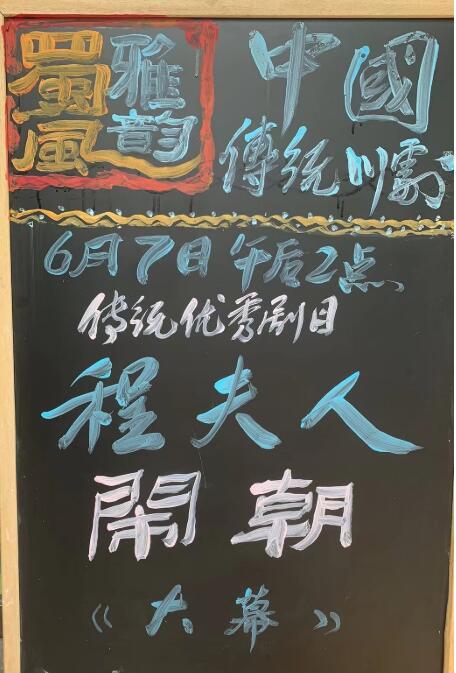 蜀風
雅韵
中國
傳统川劇
6月7日午后2点
传统优秀剧目
程夫人
閙朝
《大幕》